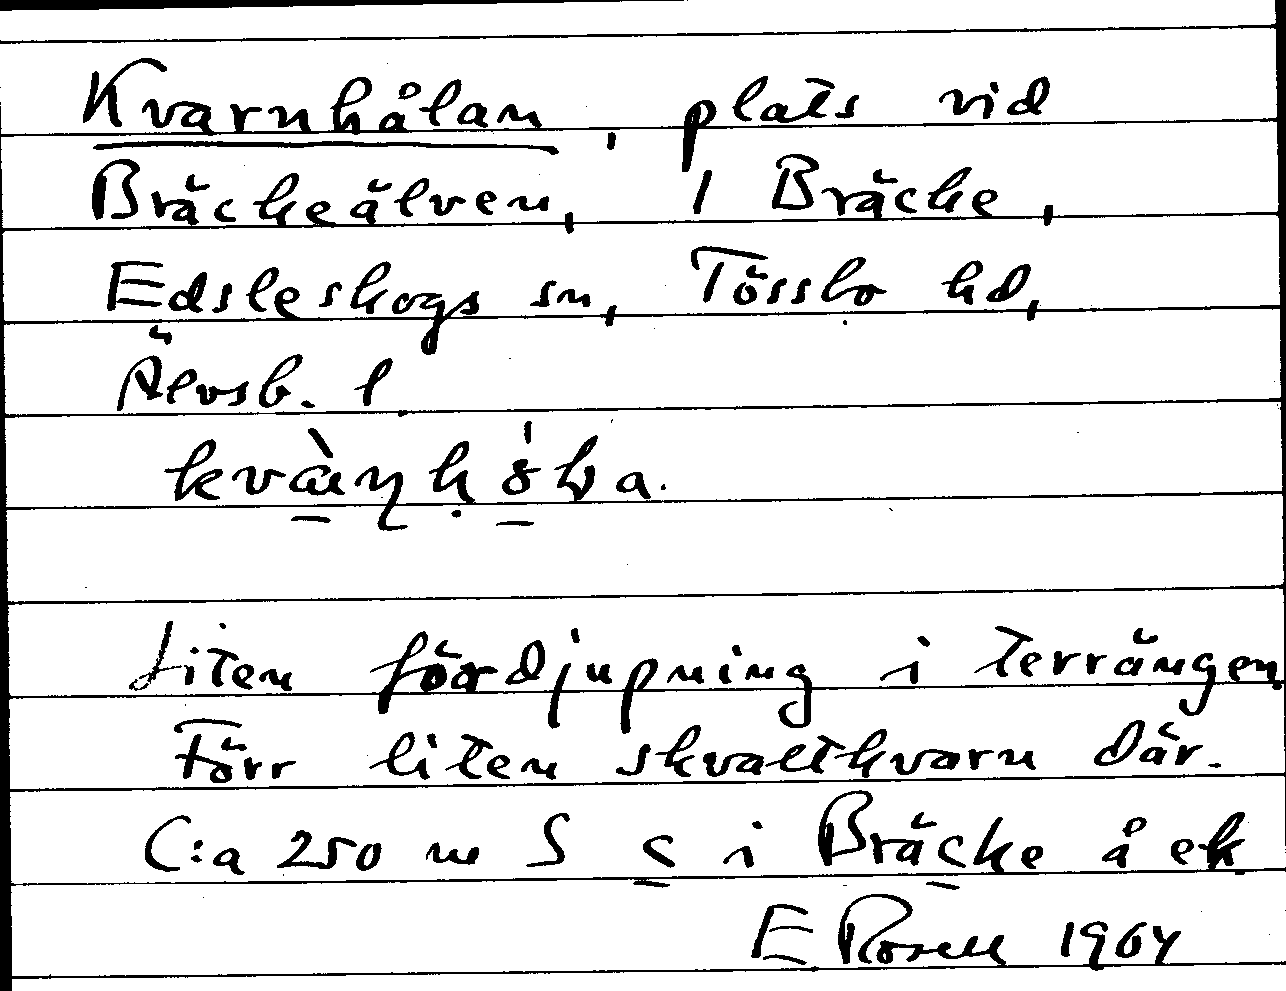 Kvarnhålan, plats vid
Bräckeälven, 1 Bräcke,
Edsleskogs sn, Tössbo hd,
Älvsb. l.
Liten fördjupning i terrängen.
Förr liten skvaltkvarn där.
C:a 250 m S c i Bräcke å ek
E Rosell 1964